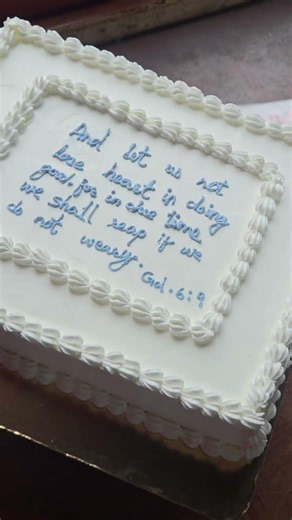 And let us not
lose heart in doing
good, for in due time
we shall reap if we
do not weary. Gal. 6:9